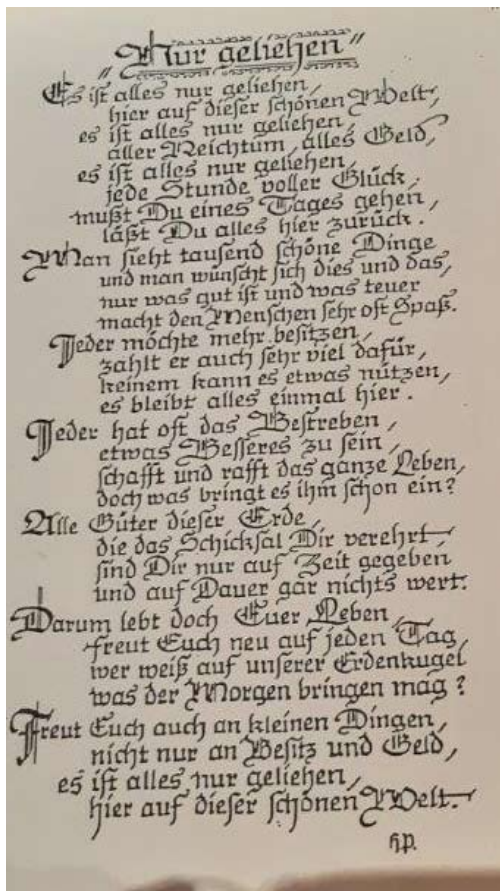 „Nur geliehen"
Es ist alles nur geliehen,
hier auf dieser schönen Welt,
es ist alles nur geliehen,
aller Reichtum, alles Geld,
es ist alles nur geliehen,
jede Stunde voller Glück,
mußt Du eines Tages gehen,
läßt Du alles hier zurück.
Man sieht tausend schöne Dinge
und man wünscht sich dies und das,
nur was gut ist und was teuer
macht den Menschen sehr oft Spaß.
Jeder möchte mehr besitzen,
zahlt er auch sehr viel dafür,
keinem kann es etwas nützen,
es bleibt alles einmal hier.
Jeder hat oft das Bestreben,
etwas Besseres zu sein,
schafft und rafft das ganze Leben,
doch was bringt es ihm schon ein?
Alle Güter dieser Erde,
die das Schicksal Dir verehrt,
sind Dir nur auf Zeit gegeben
und auf Dauer gar nichts wert.
Darum lebt doch Euer Leben,
freut Euch neu auf jeden Tag,
wer weiß auf unserer Erdenkugel
was der Morgen bringen mag?
Freut Euch auch an kleinen Dingen,
nicht nur an Besitz und Geld,
es ist alles nur geliehen,
hier auf dieser schönen Welt.
HP.